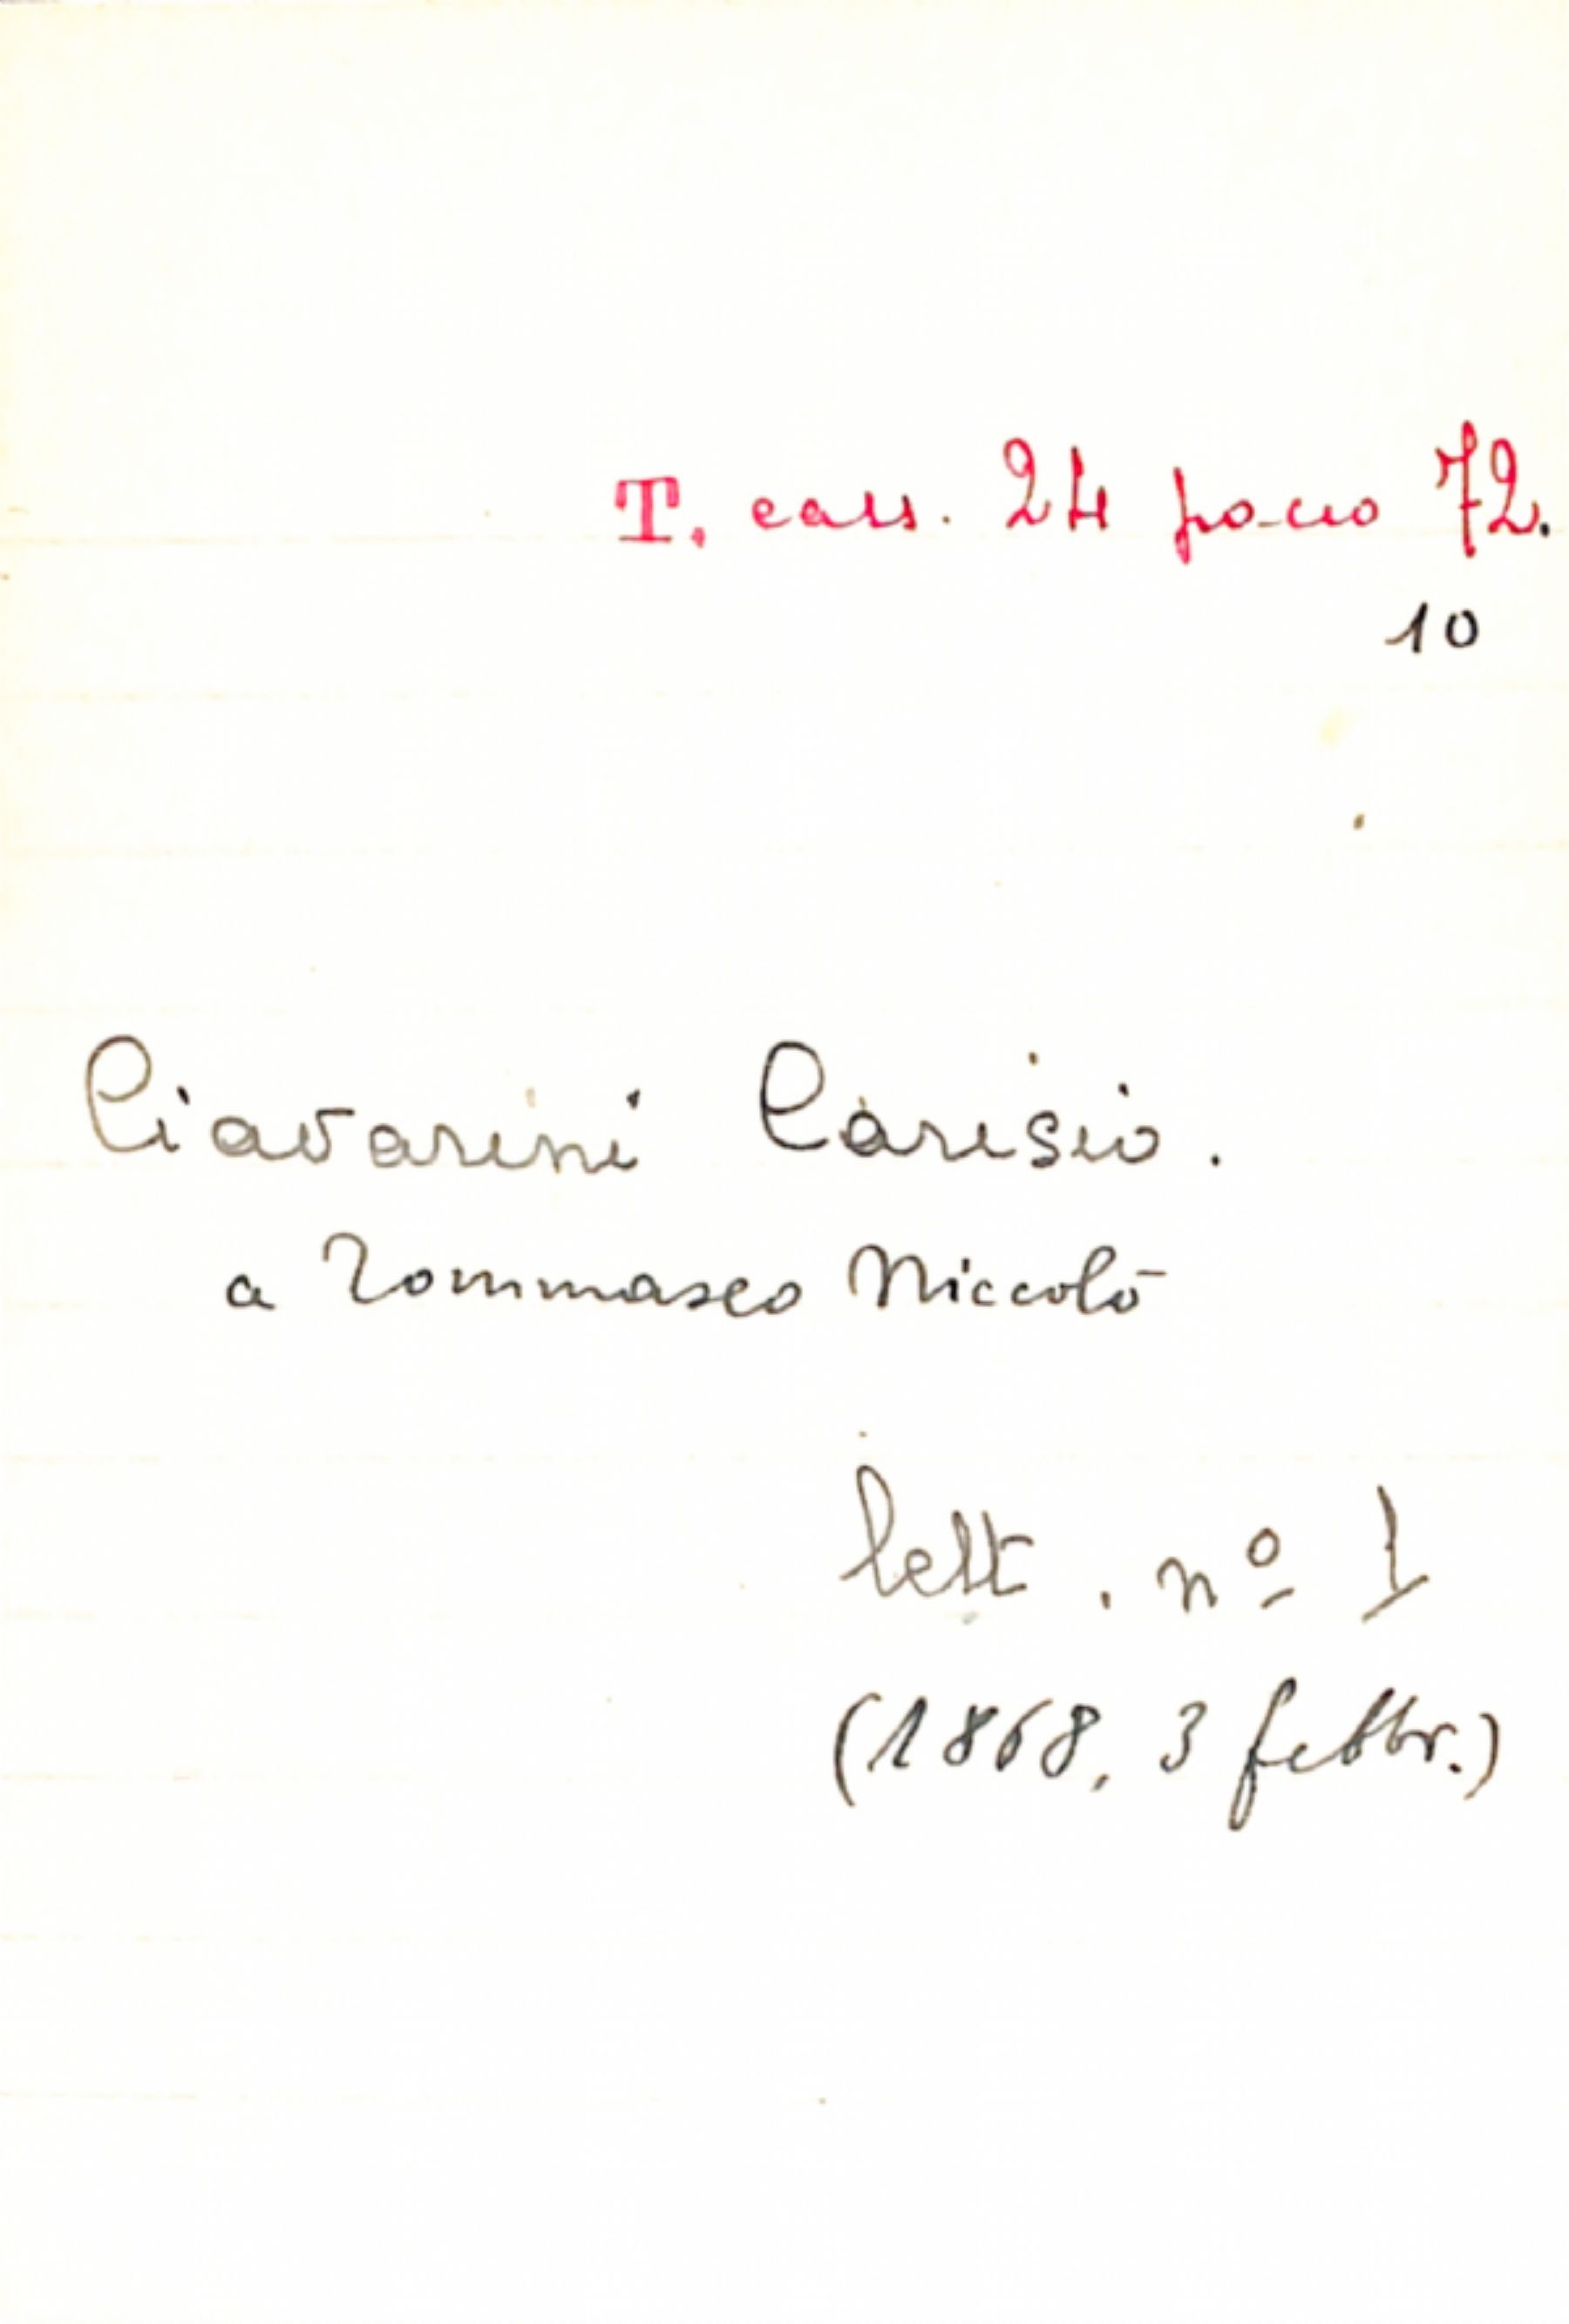 T. cass. 24 pacco 72.
10
Ciavarini Carisio.
a Tommaseo Niccolò
lett. nº 1
(1868, 3 febbr.)